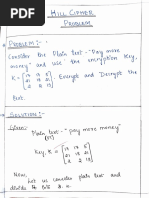 HILL CIPHER
PROBLEM
PROBLEM :-
Consider the Plain text - "Pay more
money" and use the encryption key,
K = [17 17 5
21 18 21
2 2 19] Encrypt and Decrypt the
text.
SOLUTION :-
Given: Plain text - "pay more money"
Key, K = [17 17 5
21 18 21
2 2 19]
Now, let us consider plain text and
divide it into